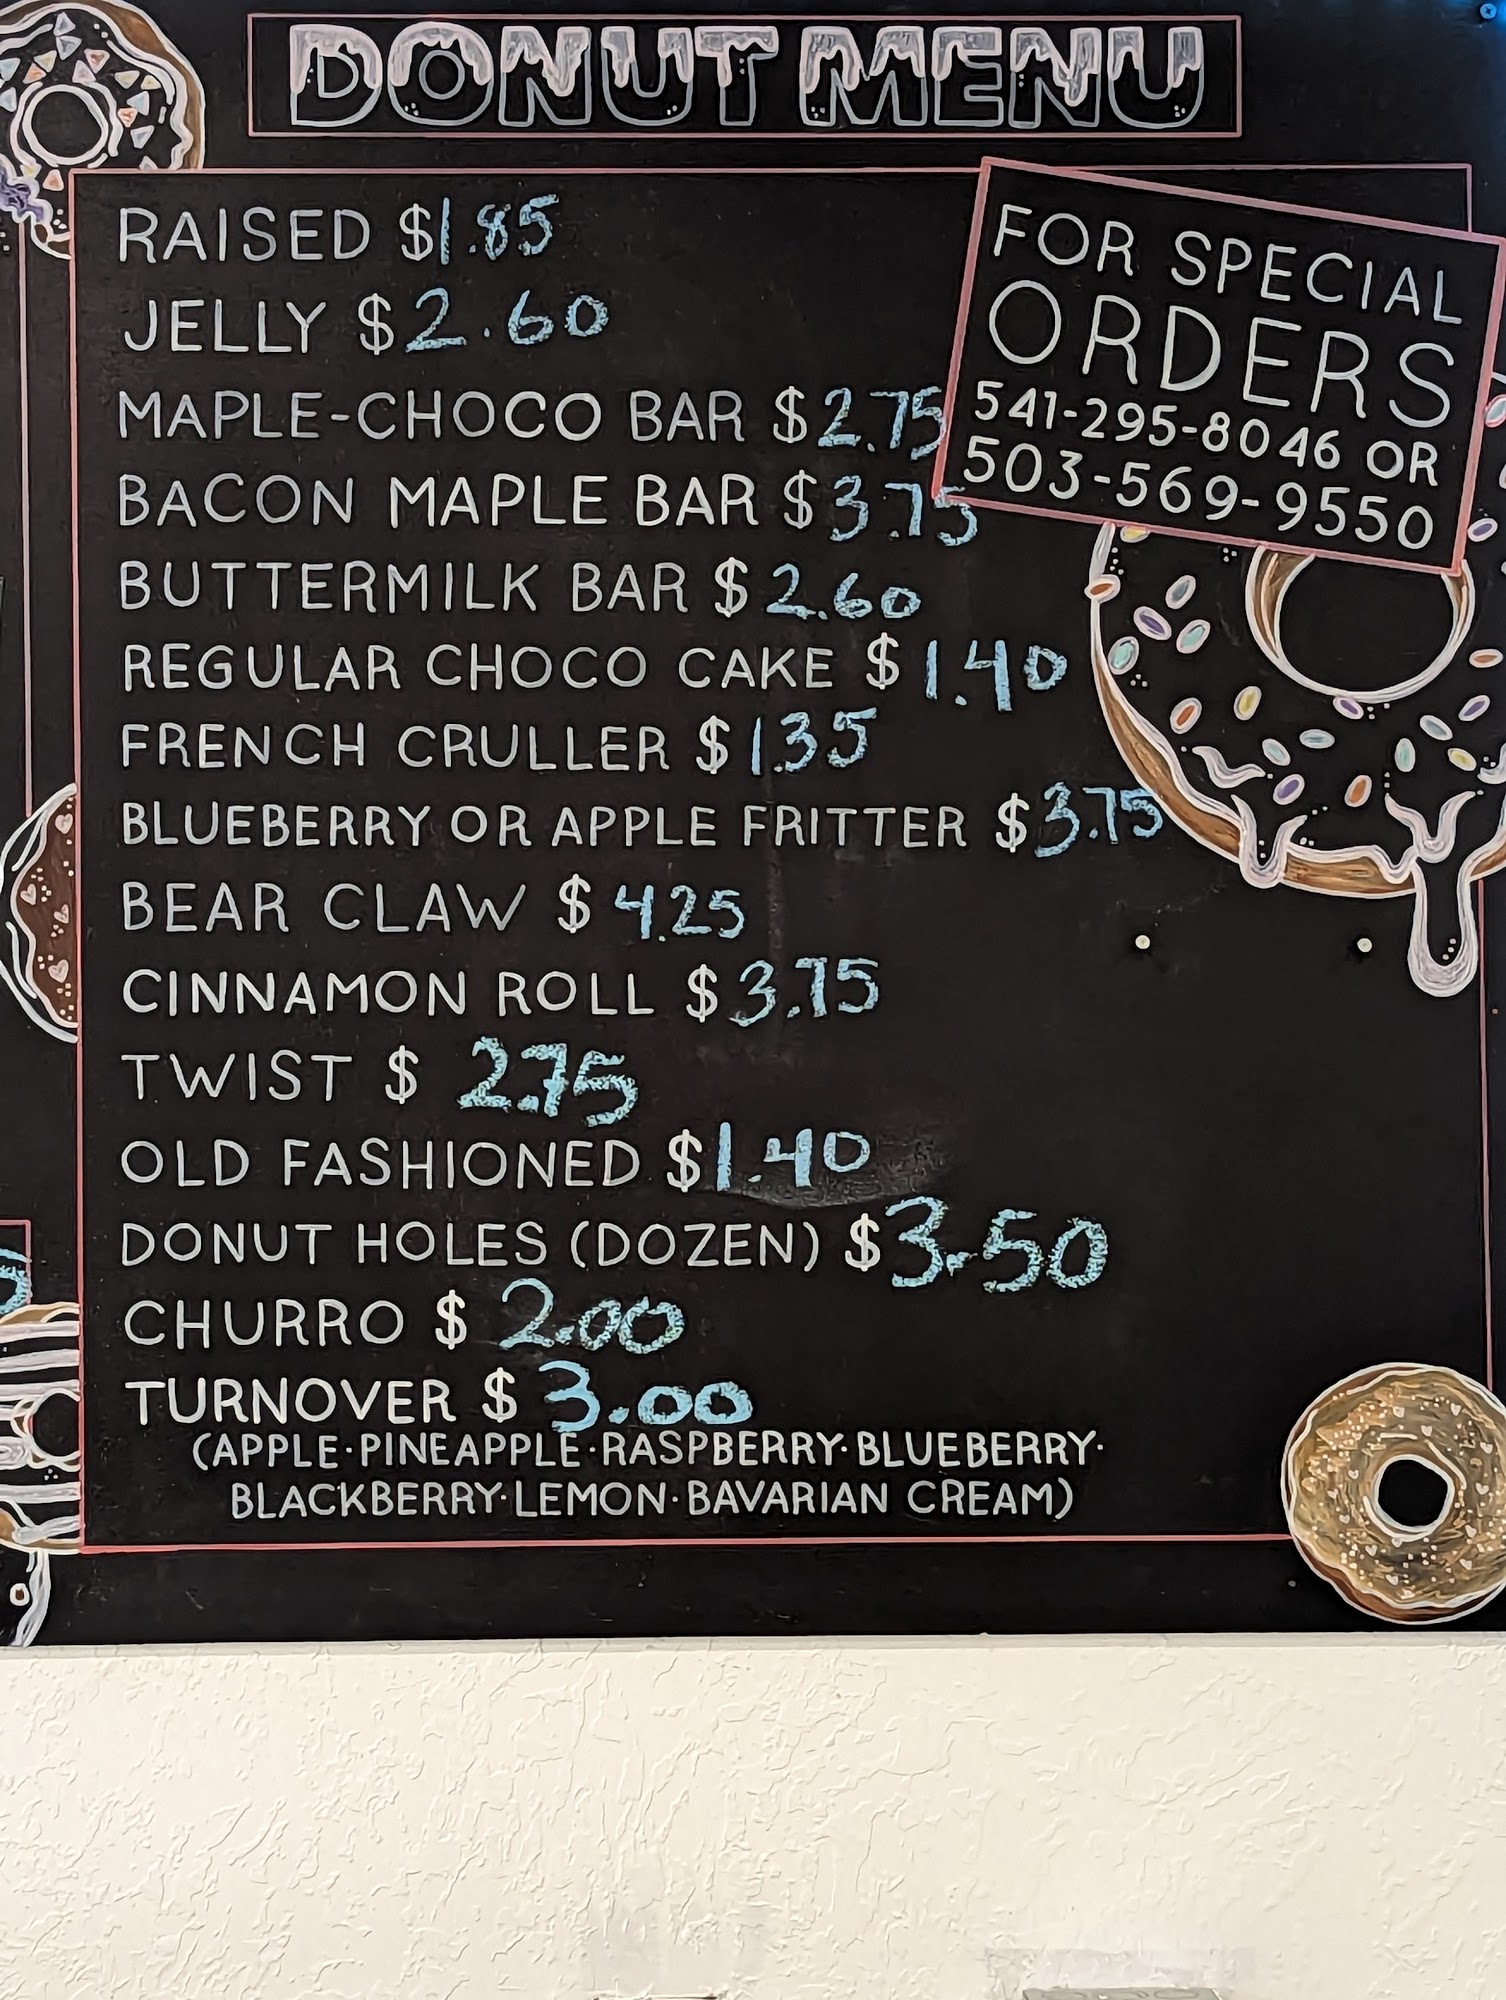 DONUT MENU
RAISED $1.85
JELLY $2.60
MAPLE-CHOCO BAR $2.75
BACON MAPLE BAR $3.75
BUTTERMILK BAR $2.60
REGULAR CHOCO CAKE $1.40
FRENCH CRULLER $1.35
BLUEBERRY OR APPLE FRITTER $3.75
BEAR CLAW $4.25
CINNAMON ROLL $3.75
TWIST $2.75
OLD FASHIONED $1.40
DONUT HOLES (DOZEN) $3.50
CHURRO $2.00
TURNOVER $3.00
(APPLE·PINEAPPLE·RASPBERRY·BLUEBERRY·
BLACKBERRY·LEMON·BAVARIAN CREAM)
FOR SPECIAL
ORDERS
541-295-8046 OR
503-569-9550